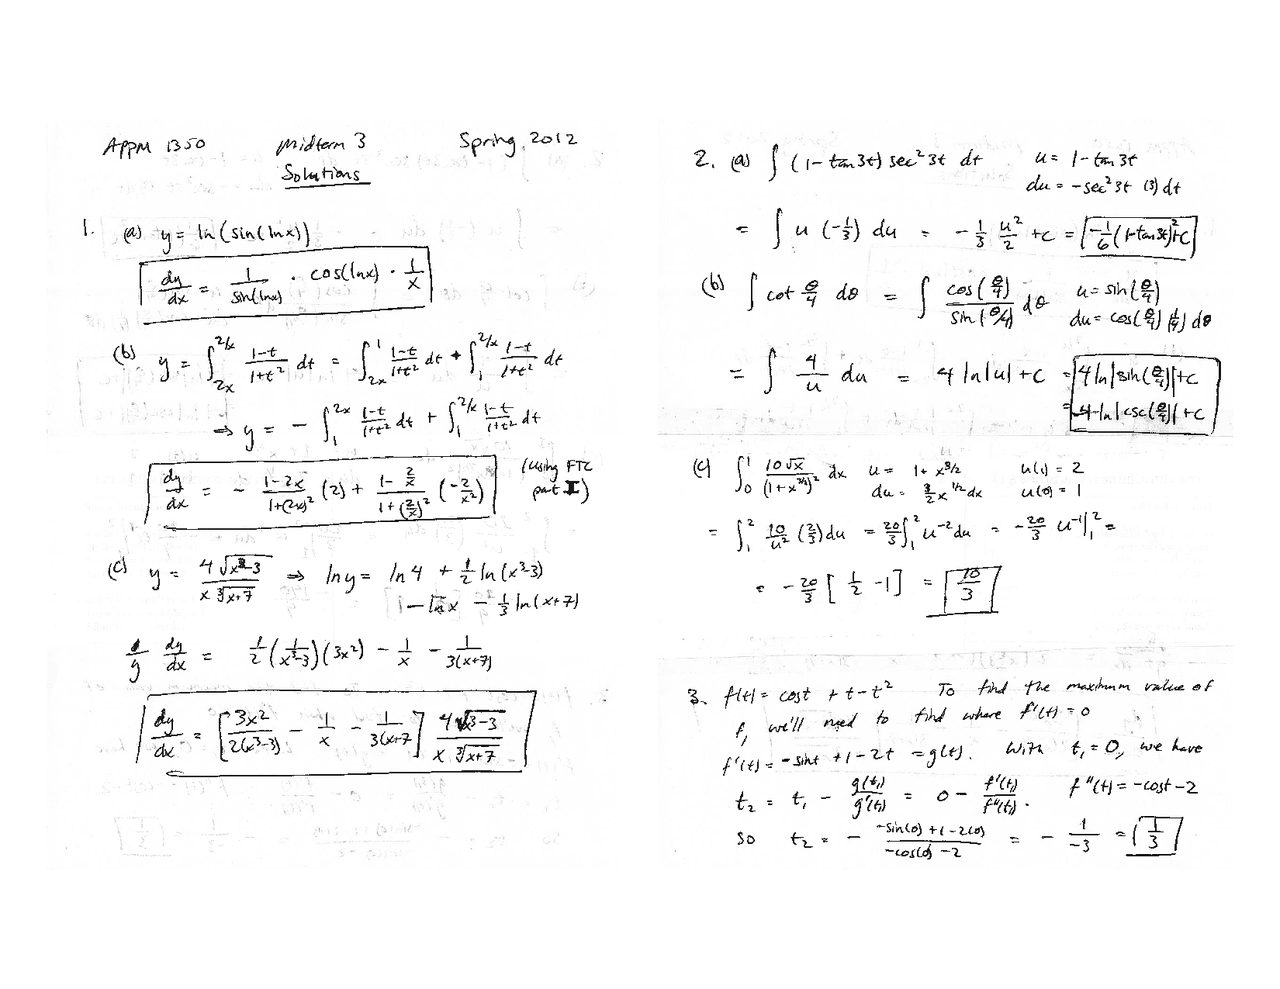 APPM 1350 Midterm 3 Spring 2012
Solutions
1. (a) y = ln(sin(lnx))
dy/dx = 1/sin(lnx) · cos(lnx) · 1/x
(b) y = ∫_{2x}^{2/x} (1-t)/(1+t²) dt = ∫_{2x}^{1} (1-t)/(1+t²) dt + ∫_1^{2/x} (1-t)/(1+t²) dt
⇒ y = - ∫_1^{2x} (1-t)/(1+t²) dt + ∫_1^{2/x} (1-t)/(1+t²) dt
dy/dx = - (1-2x)/(1+(2x)²) (2) + (1-2/x)/(1+(2/x)²) (-2/x²) (using FTC part I)
(c) y = 4√(x³-3)/(x ∛(x+7)) ⇒ ln y = ln 4 + ½ ln(x³-3)
- lnx - ⅓ ln(x+7)
1/y dy/dx = ½ (1/(x³-3))(3x²) - 1/x - 1/(3(x+7))
dy/dx = [3x²/(2(x³-3)) - 1/x - 1/(3(x+7)] 4√(x³-3)/(x ∛(x+7))
2. (a) ∫ (1-tan3t) sec²3t dt u = 1-tan3t
du = -sec²3t (3) dt
= ∫ u (-⅓) du = -⅓ u²/2 + c = -1/6 (1-tan3t)² + C
(b) ∫ cot θ/4 dθ = ∫ cos(θ/4)/sin(θ/4) dθ u = sin(θ/4)
du = cos(θ/4)(¼) dθ
= ∫ 4/u du = 4 ln|u| + c = 4 ln|sin(θ/4)| + C
= -4 ln|csc(θ/4)| + C
(c) ∫_0^1 10√x/(1+x^{3/2})² dx u = 1+x^{3/2} u(1) = 2
du = 3/2 x^{1/2} dx u(0) = 1
= ∫_1^2 10/u² (2/3) du = 20/3 ∫_1^2 u^{-2} du = -20/3 u^{-1}|_1^2 =
= -20/3 [½ - 1] = 10/3
3. f(t) = cost + t - t² To find the maximum value of
f, we'll need to find where f'(t) = 0
f'(t) = -sint + 1 - 2t = g(t). With t₁ = 0, we have
t₂ = t₁ - g(t₁)/g'(t₁) = 0 - f'(t₁)/f''(t₁). f''(t) = -cost - 2
So t₂ = - (-sin(0) + 1 - 2(0))/(-cos(0) - 2) = - 1/-3 = 1/3